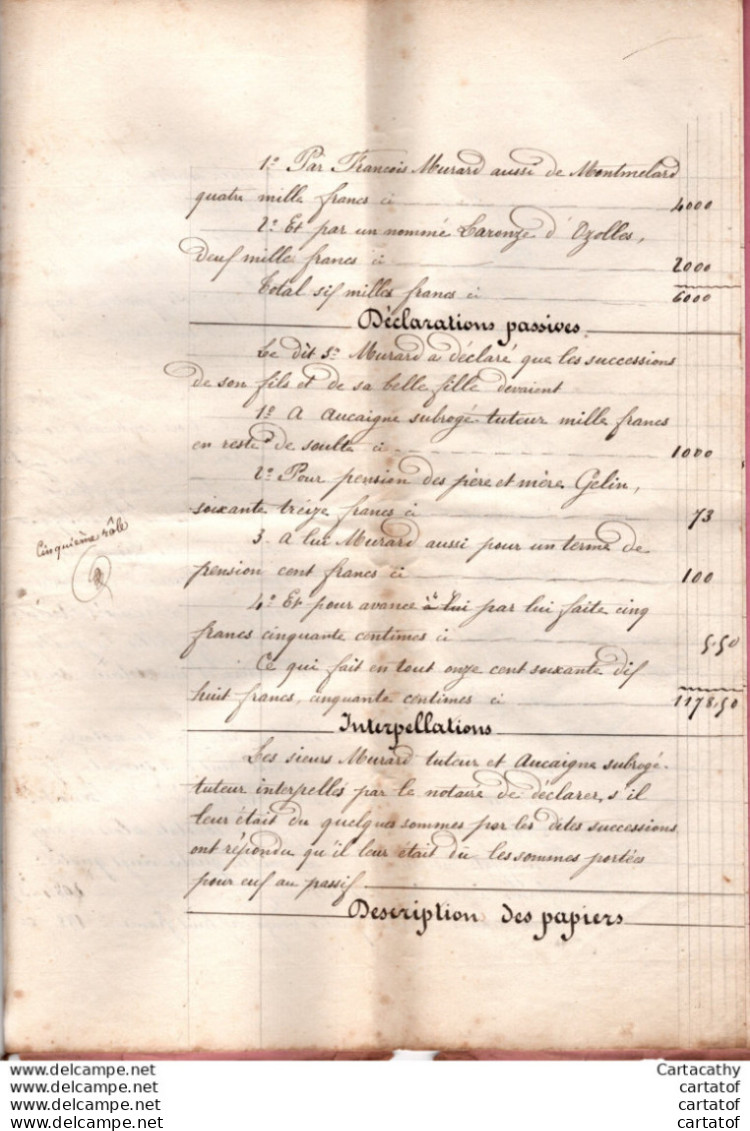 1º Par François Murard aussi de Montmelard
quatre mille francs ci 4000
2º Et par un nommé Larenze d'Ozolles,
Deux mille francs ci 2000
Total six milles francs ci 6000
Déclarations passives
Le dit Sr Murard a déclaré que les successions
de son fils et de sa belle fille devaient
1º A Aucaigne subrogé-tuteur mille francs
en reste de soulte ci 1000
2º Pour pension des père et mère Gelin,
soixante treize francs ci 73
3. A lui Murard aussi pour un terme de
pension cent francs ci 100
Cinquième rôle
4º Et pour avance à lui par lui faite cinq
francs cinquante centimes ci 5.50
Ce qui fait en tout onze cent soixante dix
huit francs, cinquante centimes ci 1178.50
Interpellations
Les sieurs Murard tuteur et Aucaigne subrogé-
tuteur interpellés par le notaire de déclarer s'il
leur était du quelques sommes par les dites successions
ont répondu qu'il leur était dû les sommes portées
pour eux au passif
Description des papiers
www.delcampe.net
www.delcampe.net
www.delcampe.net
www.delcampe.net
Cartacathy
cartatof
cartatof
cartatof